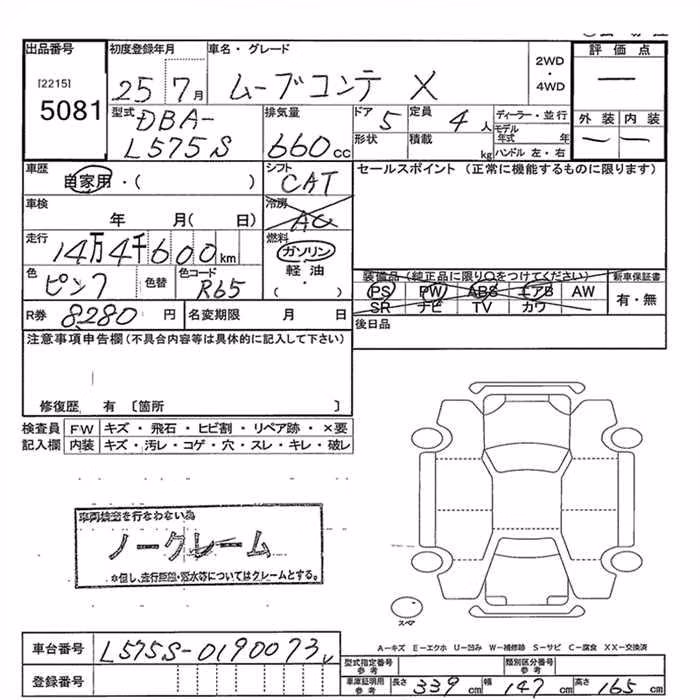 出品番号
[2215]
5081
初度登録年月
25年7月
車名・グレード
ムーブコンテ X
2WD
・
4WD
評価点
—
型式
DBA-
L575S
排気量
660cc
ドア 5
定員 4人
形状
積載 kg
ディーラー・並行
モデル
年式 年
ハンドル 左・右
外装 内装
— —
車歴
自家用・( )
シフト
CAT
セールスポイント (正常に機能するものに限ります)
車検
年 月( 日)
冷房
AC
走行
14万4千600km
燃料
ガソリン
軽油
・( )
色
ピンク
色替
色コード
R65
装備品(純正品に限り○をつけてください)
PS PW ABS エアB AW
SR ナビ TV カワ
新車保証書
有・無
R券 8,280 円
名変期限 月 日
後日品
注意事項申告欄(不具合内容等は具体的に記入して下さい)
修復歴 有 〔箇所 〕
検査員
記入欄
FW キズ・飛石・ヒビ割・リペア跡・×要
内装 キズ・汚レ・コゲ・穴・スレ・キレ・破レ
車両検査を行わない為
ノークレーム
※但し、走行距離・冠水等についてはクレームとする。
スペア
A-キズ E-エクボ U-凹み W-補修跡 S-サビ C-腐食 XX-交換済
車台番号 L575S-0190073
登録番号
型式指定番号
参考
類別区分番号
参考
車庫証明用
参考
長さ 339cm 幅 147cm 高さ 165cm